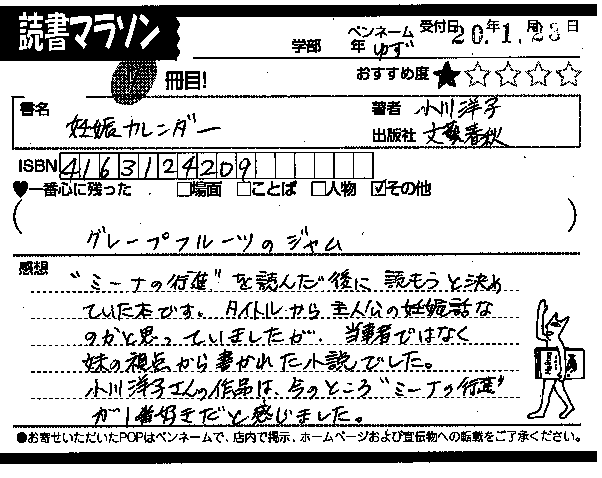 読書マラソン
冊目!
学部 年
ペンネーム ゆず
受付日 20.年1.月23日
おすすめ度 ★☆☆☆☆
書名 妊娠カレンダー
著者 小川洋子
出版社 文藝春秋
ISBN 4163124209
♥一番心に残った □場面 □ことば □人物 ☑その他
( グレープフルーツのジャム )
感想
"ミーナの行進"を読んだ後に、読もうと決め
ていた本です。タイトルから主人公の妊娠話な
のかと思っていましたが、当事者ではなく
妹の視点から書かれた小説でした。
小川洋子さんの作品は、今のところ"ミーナの行進"
が1番好きだと感じました。
●お寄せいただいたPOPはペンネームで、店内で掲示、ホームページおよび宣伝物への転載をご了承ください。